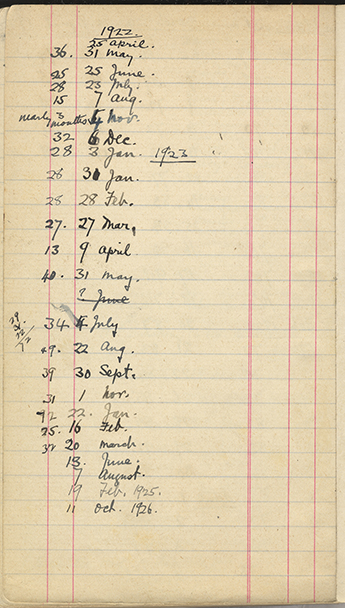 1922
25 April.
36. 31 May.
25 25 June.
28 23 July.
15 7 Aug.
nearly 3 months 4 Nov.
32 6 Dec.
28 3 Jan. 1923
28 30 Jan.
28 28 Feb.
27. 27 Mar.
13 9 April
40. 31 May.
? June
34 4 July
49. 22 Aug.
39 30 Sept.
31 1 Nov.
22. Jan.
25. 16 Feb.
32 20 March.
13. June.
7 August.
19 Feb. 1925.
11 Oct. 1926.